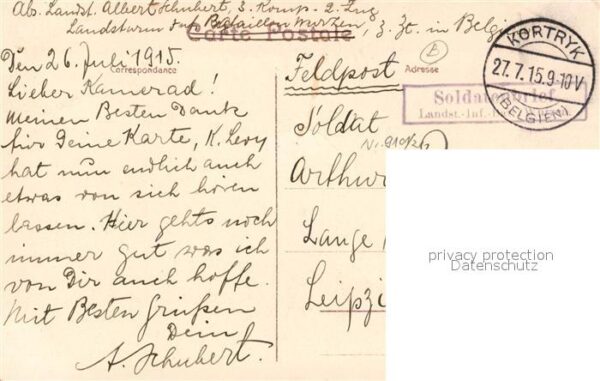 Abs. Landst. Albert Schubert, 3. Komp. 2. Zug
Landsturm Inf. Bataillon Wurzen, z. Zt. in Belgien
Carte Postale
Correspondance
Adresse
Den 26. Juli 1915.
Lieber Kamerad!
Meinen Besten Dank
für Deine Karte, K. Levy
hat nun endlich auch
etwas von sich hören
lassen. Hier gehts noch
immer gut was ich
von Dir auch hoffe.
Mit Besten Grüßen
Dein
A. Schubert.
Feldpost
Soldat
Arthur
Lange
Leipzi
KORTRYK
27.7.15.9-10V
(BELGIEN)
Soldatenbrief
Landst.-Inf.
privacy protection
Datenschutz